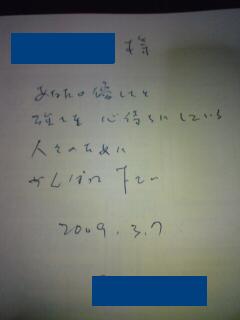 様
あなたの優しさと
強さを 心待ちにしている
人々のために
がんばって 下さい
2009.3.7